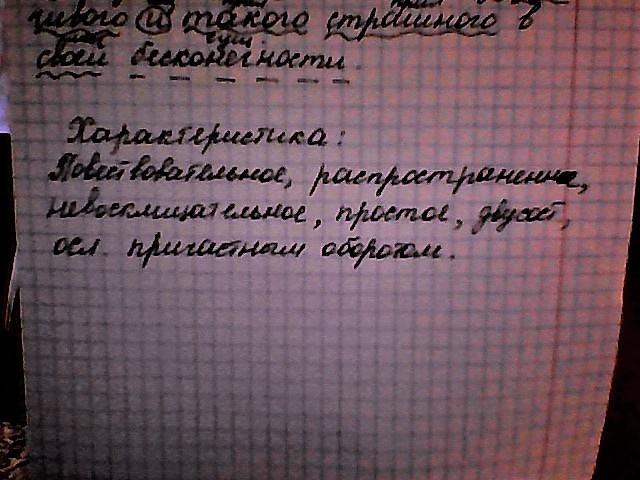 и такого страшного в
своей бесконечности.
Характеристика:
Повествовательное, распространенное,
невосклицательное, простое, двусост,
осл. причастным оборотом.